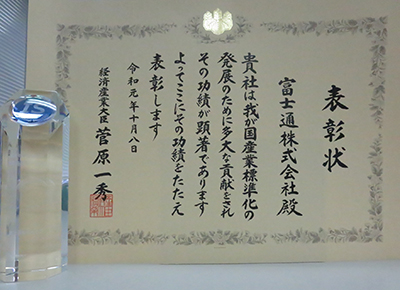 表彰状
富士通株式会社殿
貴社は我が国産業標準化の
発展のために多大な貢献をされ
その功績が顕著であります
よってここにその功績をたたえ
表彰します
令和元年十月八日
経済産業大臣 菅原一秀